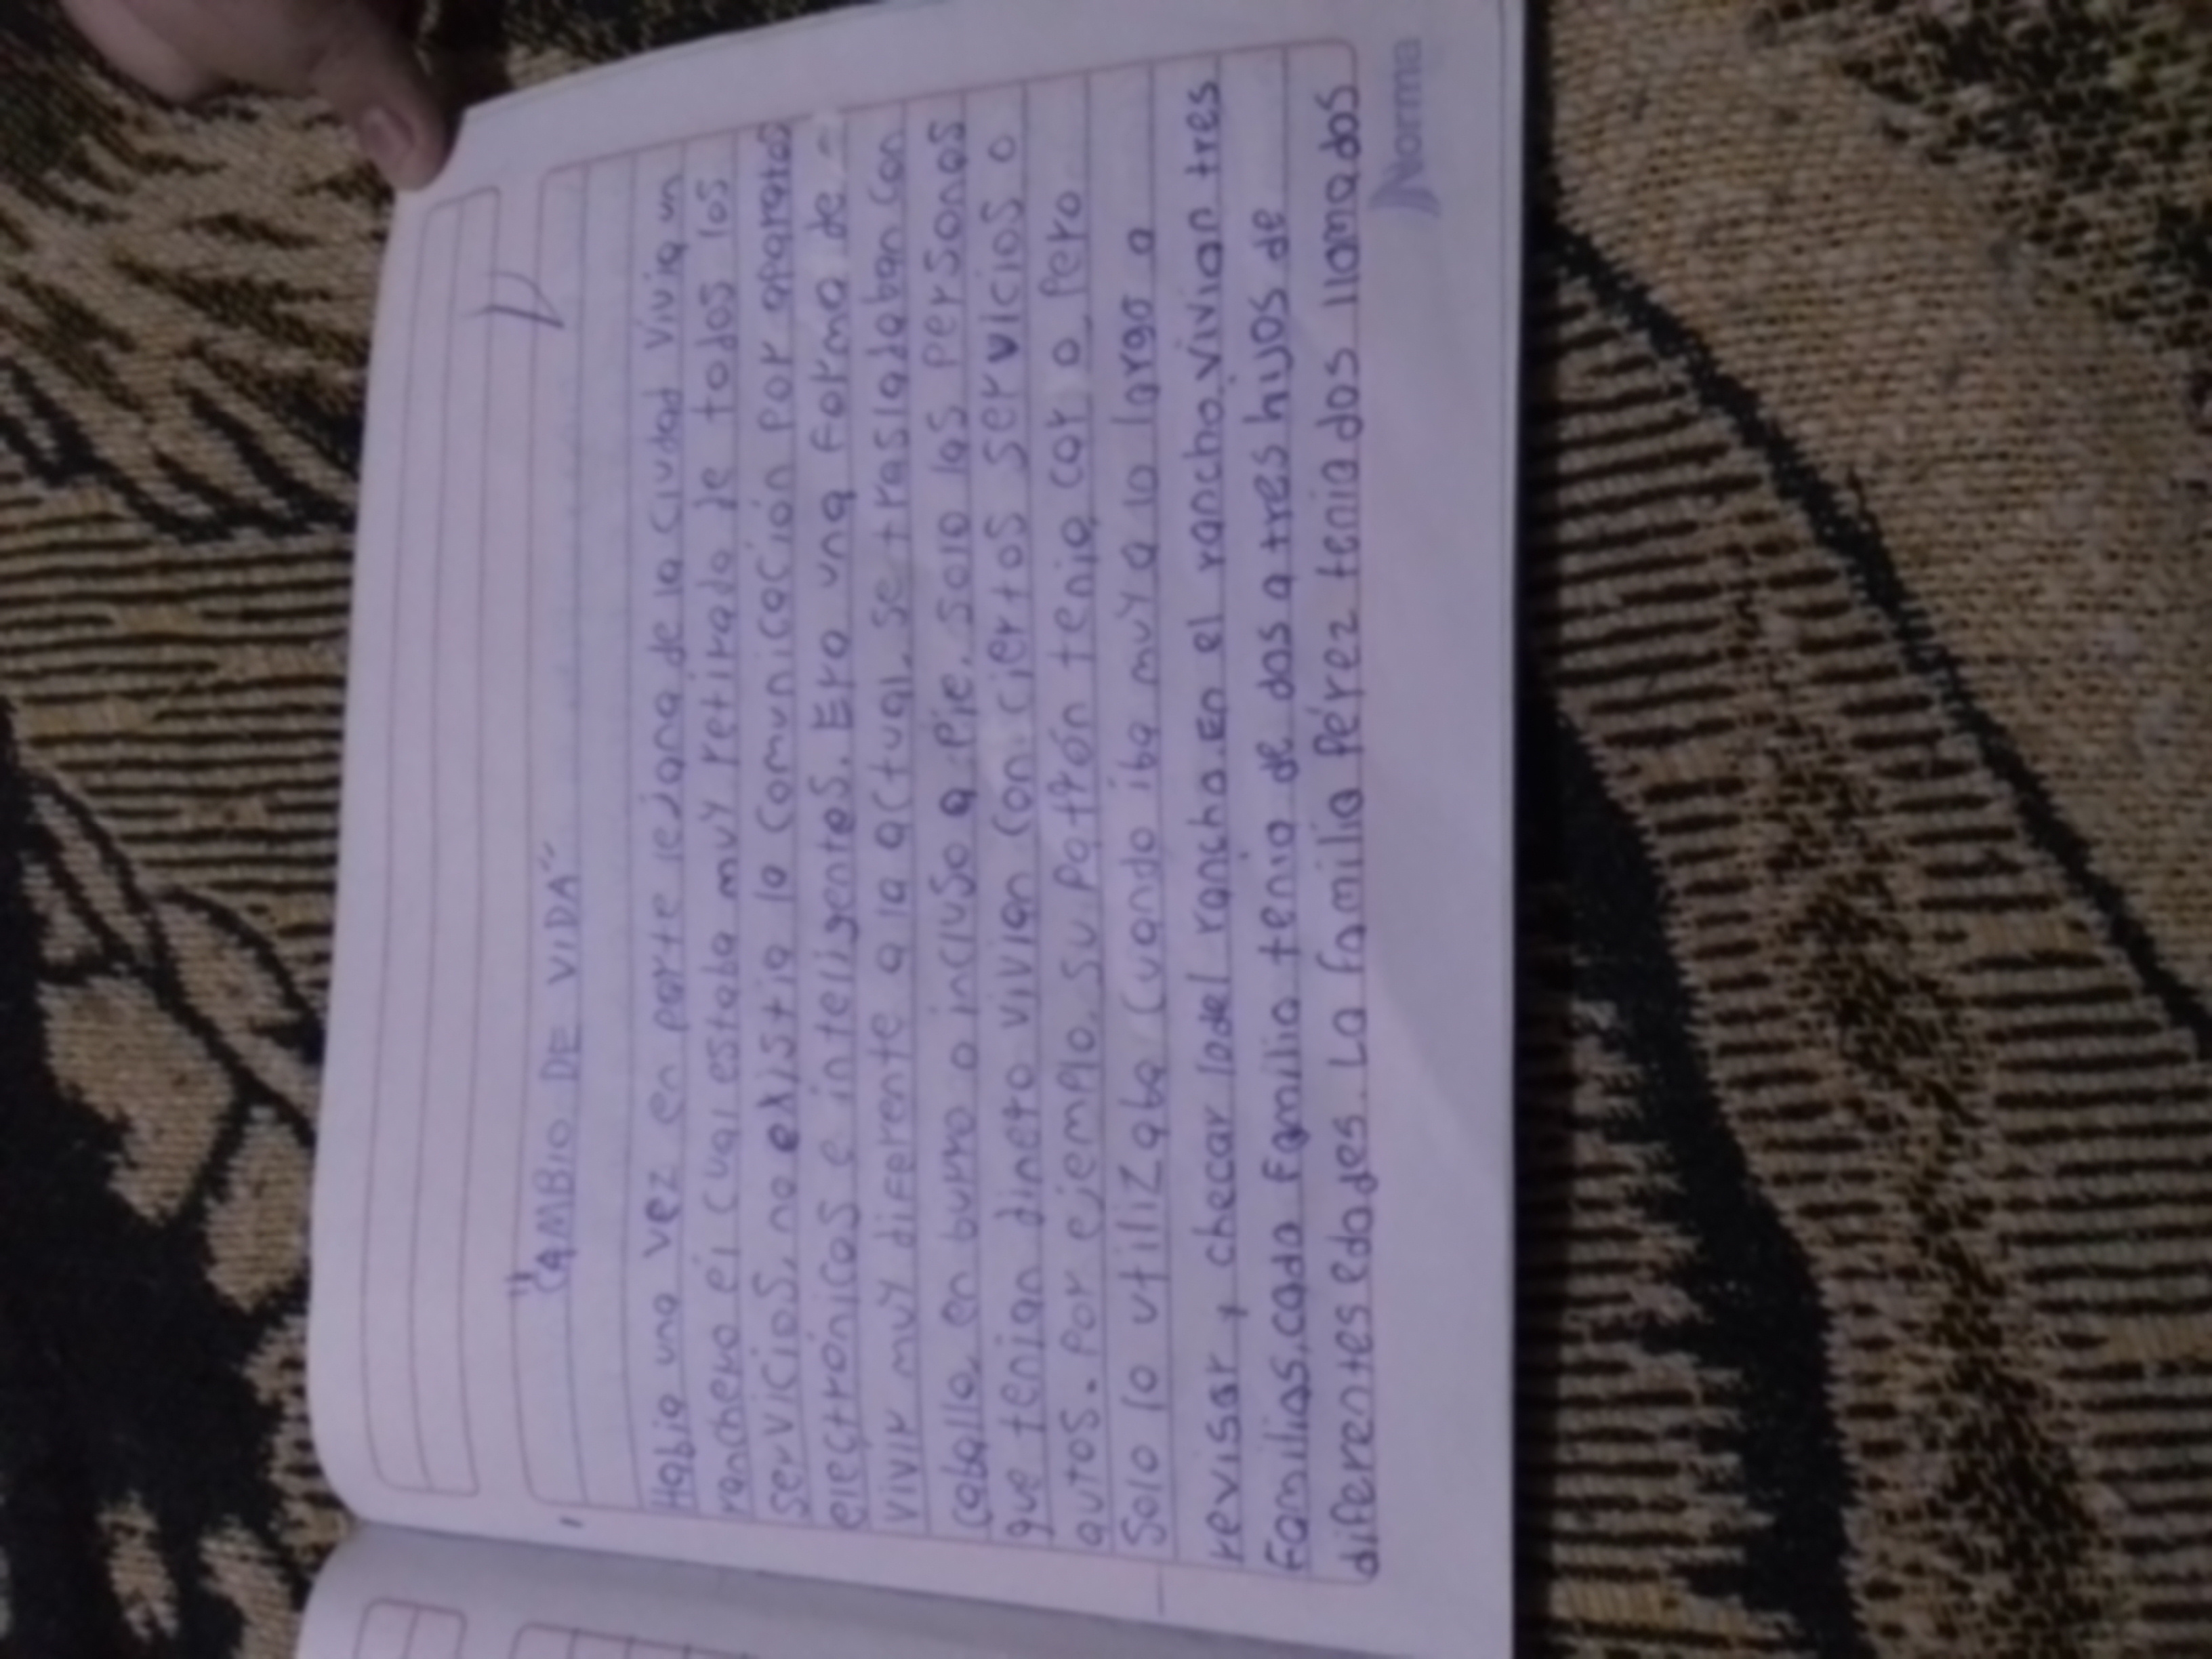 "CAMBIO DE VIDA"
Habia una vez en parte lejana de la ciudad vivia un
ranchero el cual estaba muy retirado de todos los
servicios, no existia la comunicación por aparatos
electrónicos e inteligentes. Era una forma de -
vivir muy diferente a la actual. se trasladaban con
caballo, en burro o incluso a pie. solo las personas
que tenian dinero vivian con ciertos servicios o
autos. Por ejemplo, su patrón tenia carro. Pero
Solo lo utilizaba cuando iba muy a lo largo a
revisar y checar lo del rancho. En el rancho vivian tres
familias, cada familia tenia de dos a tres hijos de
diferentes edades. La familia Pérez tenia dos llamados
Norma